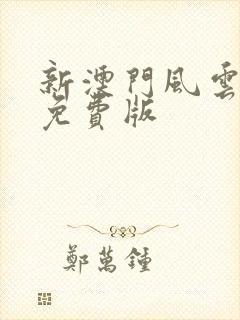 新湮門風雲
免費版
鄭萬鍾